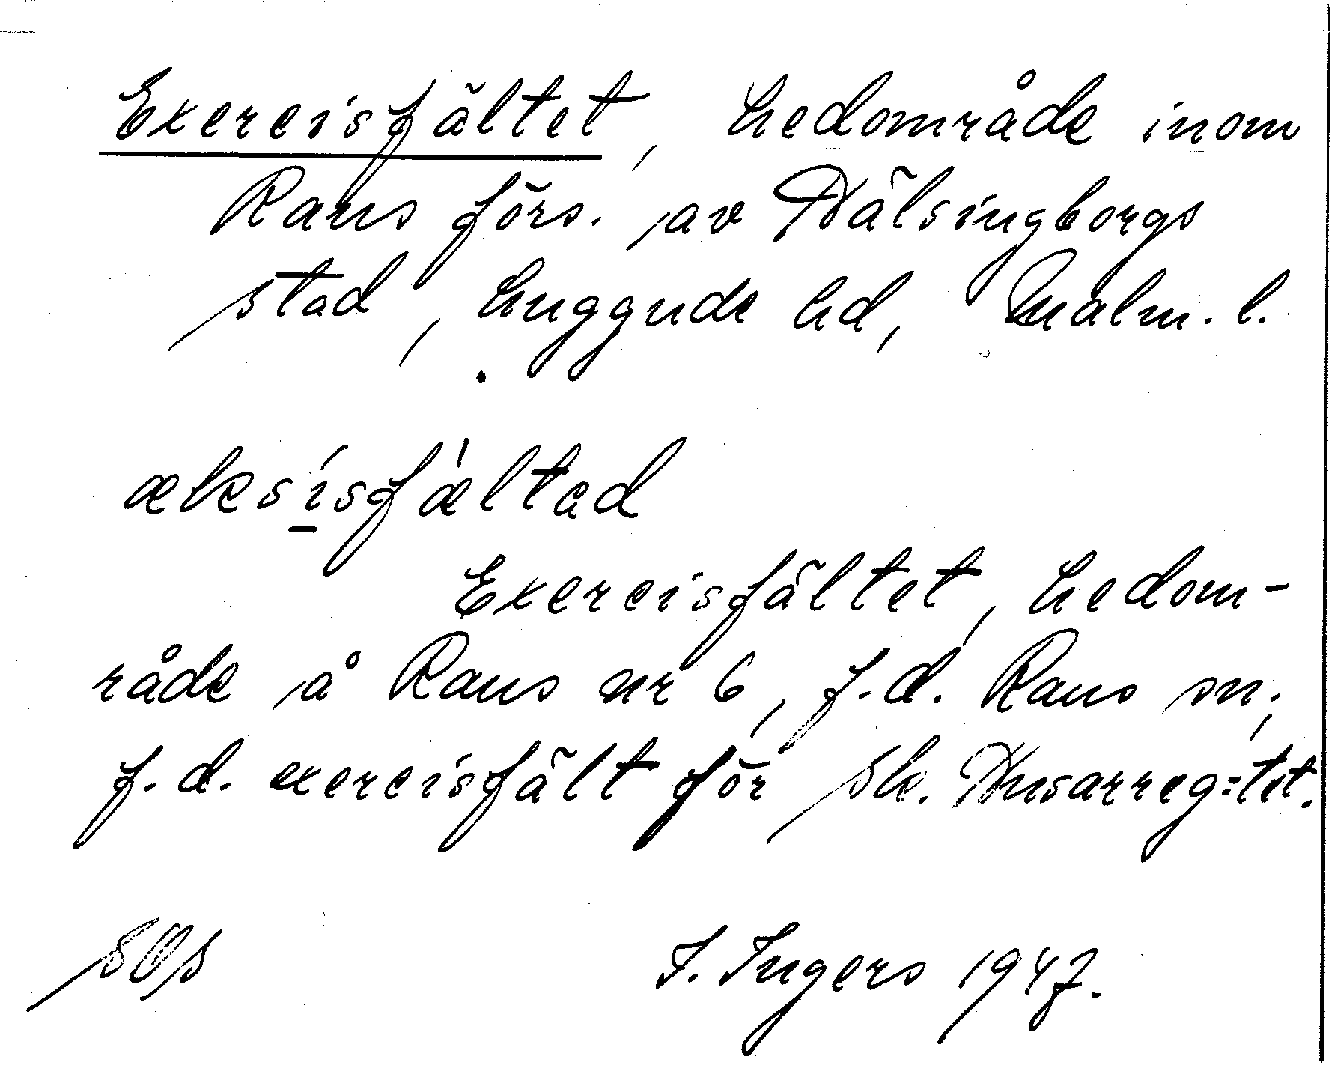 Exercisfältet, hedområde inom
Raus förs. av Hälsingborgs
stad, Luggude hd, Malm. l.
æksísfæ̀ltad
Exercisfältet, hedom-
råde å Raus nr 6, f.d. Raus sn;
f.d. exercisfält för Sk. Husarreg:tet.
SOS
I. Ingers 1947.